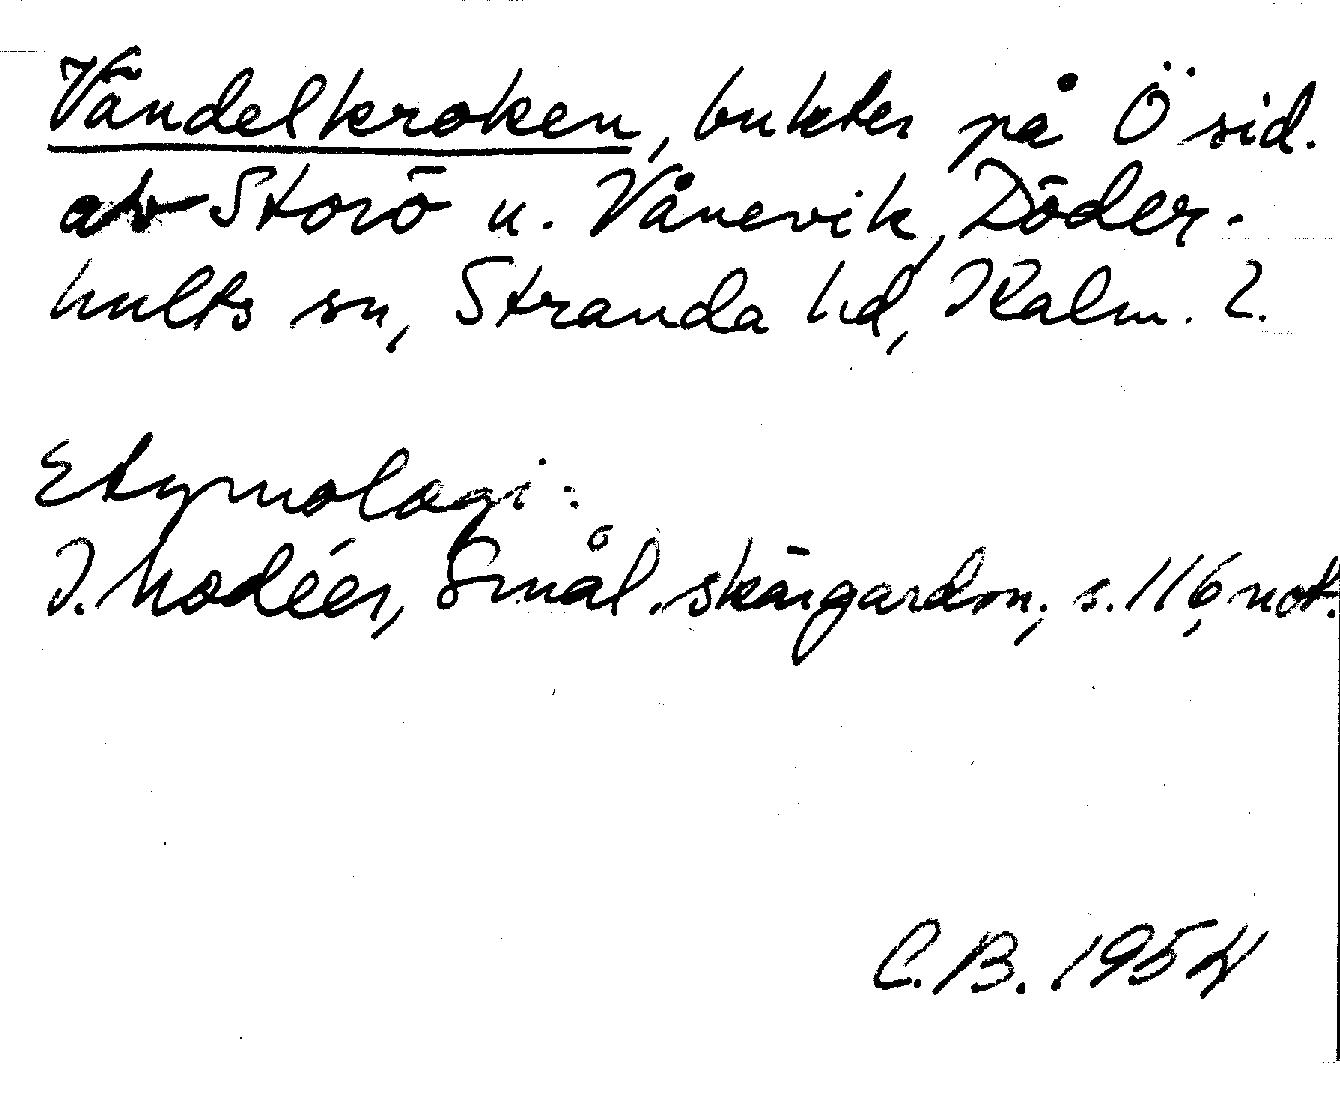 Vändelkroken, bukter på Ö sid.
av Storö n. Vånevik, Döder-
hults sn, Stranda hd, Kalm. l.
Etymologi:
I. Modéer, Smål. skärgårdsn., s. 116, not.
C.B. 1954